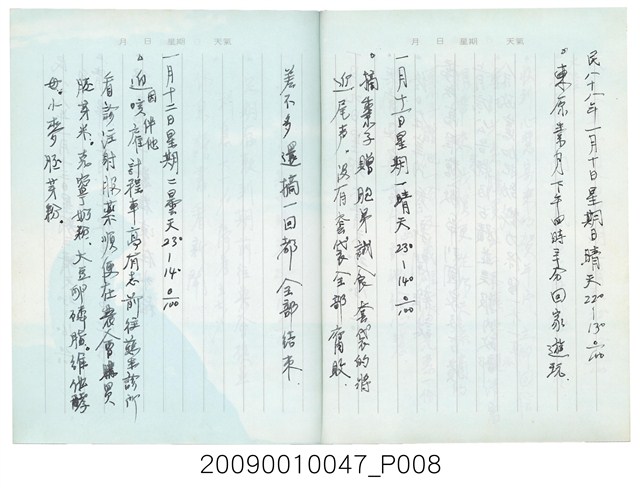 月 日 星期 天氣
民八十八年一月十日星期日晴天22°-13° 0/100
。東原業月下午四時半分回家遊玩.
一月十一日星期一晴天23°-14° 0/100
。摘棗子贈胞弟試食套袋的將
近尾声。沒有套袋全部腐敗.
差不多還摘一回都全部結束.
月 日 星期 天氣
一月十二日星期二曇天23°-14° 0/100
。近因伴他咳雇計程車高有志前往蔴豆診所
看診注射服藥順便在農會購買
胚芽米。克寧奶粉、大豆卵磷脂。維他酵
母。小麥胚芽粉。
20090010047_P008